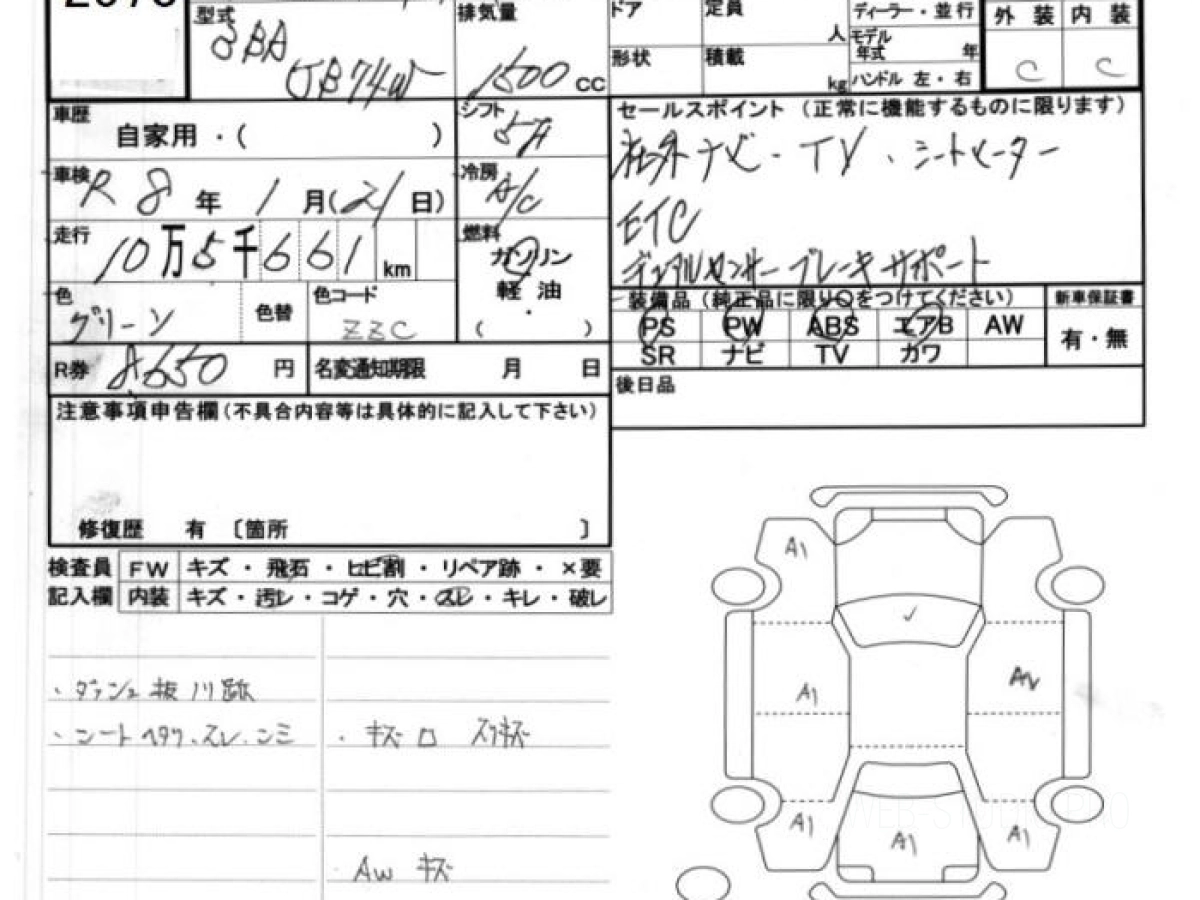 型式 3BA 排気量 ドア 定員 人 ディーラー・並行 外装 内装
JB74W 1500 cc 形状 積載 kg モデル年式 年 C C
ハンドル 左・右
車歴 自家用・( ) シフト 5A セールスポイント (正常に機能するものに限ります)
社外ナビ・TV、シートヒーター
車検 R 8 年 1 月(21日) 冷房 A/C
ETC
走行 10万5千661km 燃料 ガソリン
軽油
( )
デュアルセンサーブレーキサポート
色 グリーン 色替 色コード ZZC
装備品 (純正品に限り○をつけてください) 新車保証書
PS PW ABS エアB AW 有・無
SR ナビ TV カワ
R券 8,650 円 名変通知期限 月 日
後日品
注意事項申告欄(不具合内容等は具体的に記入して下さい)
修復歴 有 〔箇所 〕
検査員 FW キズ・飛石・ヒビ割・リペア跡・×要
記入欄 内装 キズ・汚レ・コゲ・穴・スレ・キレ・破レ
・ダッシュ板 跡
・シートヘタリ、スレ、シミ ・キズ
・AW キズ
A1
✓
A1
A1
A1
A1